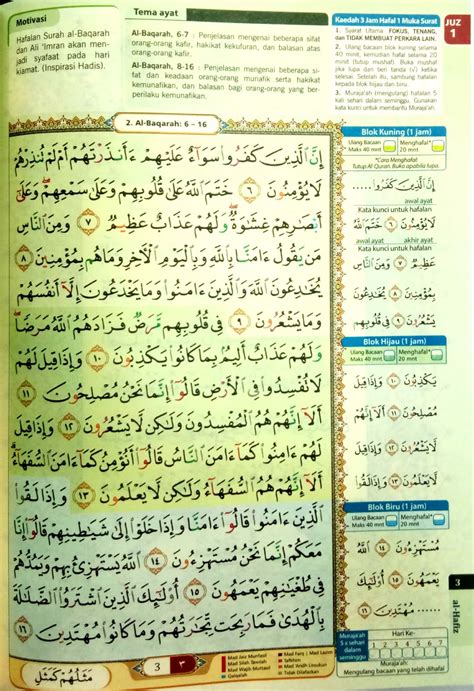 Motivasi
Hafalan Surah al-Baqarah
dan Ali 'Imran akan men-
jadi syafaat pada hari
kiamat. (Inspirasi Hadis).
Tema ayat
Al-Baqarah, 6-7 : Penjelasan mengenai beberapa sifat
orang-orang kafir, hakikat kekufuran, dan balasan atas
orang-orang kafir.
Al-Baqarah, 8-16 : Penjelasan mengenai beberapa si-
fat dan keadaan orang-orang munafik serta hakikat
kemunafikan, dan balasan bagi orang-orang yang ber-
perilaku kemunafikan.
Kaedah 3 Jam Hafal 1 Muka Surat
1. Syarat Utama FOKUS, TENANG,
dan TIDAK MEMBUAT PERKARA LAIN.
2. Ulang bacaan blok kuning selama
40 minit, kemudian hafal selama 20
minit (tutup mushaf). Buka mushaf
jika lupa dan beri tanda (√) ketika
selesai. Setelah itu, sambung hafalan
kepada blok hijau dan biru.
3. Muraja'ah (mengulang) hafalan 5
kali sehari dalam seminggu. Gunakan
kata kunci untuk membantu Muraja'ah.
JUZ
1
2. Al-Baqarah: 6 - 16
إِنَّ الَّذِينَ كَفَرُوا سَوَاءٌ عَلَيْهِمْ ءَأَنذَرْتَهُمْ أَمْ لَمْ تُنذِرْهُمْ
لَا يُؤْمِنُونَ ٦ خَتَمَ اللَّهُ عَلَىٰ قُلُوبِهِمْ وَعَلَىٰ سَمْعِهِمْ ۖ وَعَلَىٰ
أَبْصَارِهِمْ غِشَاوَةٌ ۖ وَلَهُمْ عَذَابٌ عَظِيمٌ ٧ وَمِنَ النَّاسِ
مَن يَقُولُ ءَامَنَّا بِاللَّهِ وَبِالْيَوْمِ الْآخِرِ وَمَا هُم بِمُؤْمِنِينَ ٨
يُخَادِعُونَ اللَّهَ وَالَّذِينَ ءَامَنُوا وَمَا يَخْدَعُونَ إِلَّا أَنفُسَهُمْ
وَمَا يَشْعُرُونَ ٩ فِي قُلُوبِهِم مَّرَضٌ فَزَادَهُمُ اللَّهُ مَرَضًا ۖ
وَلَهُمْ عَذَابٌ أَلِيمٌ بِمَا كَانُوا يَكْذِبُونَ ١٠ وَإِذَا قِيلَ لَهُمْ
لَا تُفْسِدُوا فِي الْأَرْضِ قَالُوا إِنَّمَا نَحْنُ مُصْلِحُونَ ١١
أَلَا إِنَّهُمْ هُمُ الْمُفْسِدُونَ وَلَٰكِن لَّا يَشْعُرُونَ ١٢ وَإِذَا قِيلَ
لَهُمْ ءَامِنُوا كَمَا ءَامَنَ النَّاسُ قَالُوا أَنُؤْمِنُ كَمَا ءَامَنَ السُّفَهَاءُ ۗ
أَلَا إِنَّهُمْ هُمُ السُّفَهَاءُ وَلَٰكِن لَّا يَعْلَمُونَ ١٣ وَإِذَا لَقُوا
الَّذِينَ ءَامَنُوا قَالُوا ءَامَنَّا وَإِذَا خَلَوْا إِلَىٰ شَيَاطِينِهِمْ قَالُوا إِنَّا
مَعَكُمْ إِنَّمَا نَحْنُ مُسْتَهْزِءُونَ ١٤ اللَّهُ يَسْتَهْزِئُ بِهِمْ وَيَمُدُّهُمْ
فِي طُغْيَانِهِمْ يَعْمَهُونَ ١٥ أُولَٰئِكَ الَّذِينَ اشْتَرَوُا الضَّلَالَةَ
بِالْهُدَىٰ فَمَا رَبِحَت تِّجَارَتُهُمْ وَمَا كَانُوا مُهْتَدِينَ ١٦
Blok Kuning (1 jam)
Ulang Bacaan
Maks 40 mnt
Menghafal*
20 mnt
*Cara Menghafal
Tutup Al-Quran. Buka apabila lupa.
إِنَّ الَّذِينَ كَفَرُوا ......
awal ayat
Kata kunci untuk hafalan
لَا يُؤْمِنُونَ ٦ خَتَمَ اللَّهُ
awal ayat akhir ayat
Kata kunci untuk hafalan
عَظِيمٌ ٧ وَمِنَ النَّاسِ
بِمُؤْمِنِينَ ٨ يُخَادِعُونَ
يَشْعُرُونَ ٩ فِي قُلُوبِهِم
Blok Hijau (1 jam)
Ulang Bacaan
Maks 40 mnt
Menghafal*
20 mnt
يَكْذِبُونَ ١٠ وَإِذَا قِيلَ
مُصْلِحُونَ ١١ أَلَا إِنَّهُمْ
لَّا يَشْعُرُونَ ١٢ وَإِذَا قِيلَ
لَّا يَعْلَمُونَ ١٣ وَإِذَا لَقُوا
Blok Biru (1 jam)
Ulang Bacaan
Maks 40 mnt
Menghafal*
20 mnt
مُسْتَهْزِءُونَ ١٤ اللَّهُ
يَعْمَهُونَ ١٥ أُولَٰئِكَ
...... مُهْتَدِينَ ١٦
Muraja'ah
5 x sehari
dalam
seminggu
Hari Ke-
1 2 3 4 5 6 7
Muraja'ah:
Mengulang bacaan yang telah dihafal
3
al-Hafiz
3 ٣
مَثَلُهُمْ كَمَثَلِ